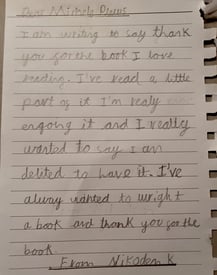 Dear Michele Dlows
I am writing to say thank
you for the book I love
reading. I've read a little
part of it I'm realy
engoing it and I really
wanted to say I am
delited to have it. I've
alway wanted to wright
a book and thank you for the
book.
From Nikodem K